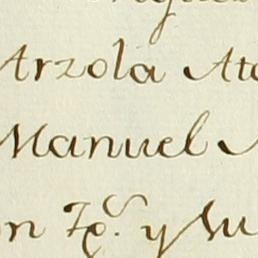 Arzola Ato
Manuel
n Fco. y su